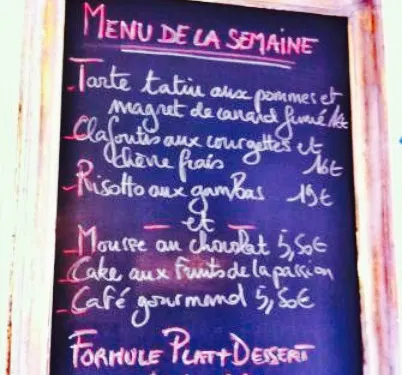 MENU DE LA SEMAINE
- Tarte tatin aux pommes et
magret de canard fumé 16€
- Clafoutis aux courgettes et
chèvre frais 16€
- Risotto aux gambas 19€
- et -
- Mousse au chocolat 5,50€
- Cake aux fruits de la passion
- Café gourmand 5,50€
FORMULE PLAT + DESSERT